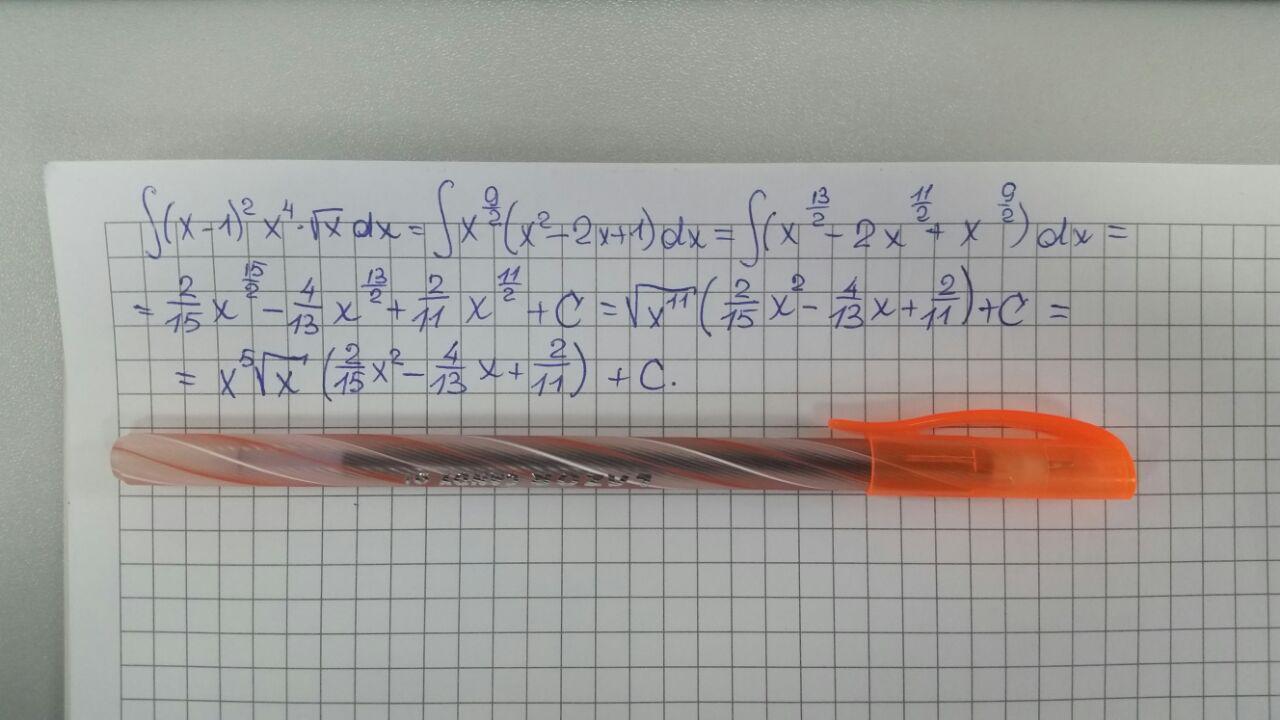 ∫(x-1)² x⁴·√x dx = ∫x^(9/2)(x²-2x+1)dx = ∫(x^(13/2) - 2x^(11/2) + x^(9/2))dx =
= 2/15 x^(15/2) - 4/13 x^(13/2) + 2/11 x^(11/2) + C = √x¹¹ (2/15 x² - 4/13 x + 2/11) + C =
= x⁵√x (2/15 x² - 4/13 x + 2/11) + C.